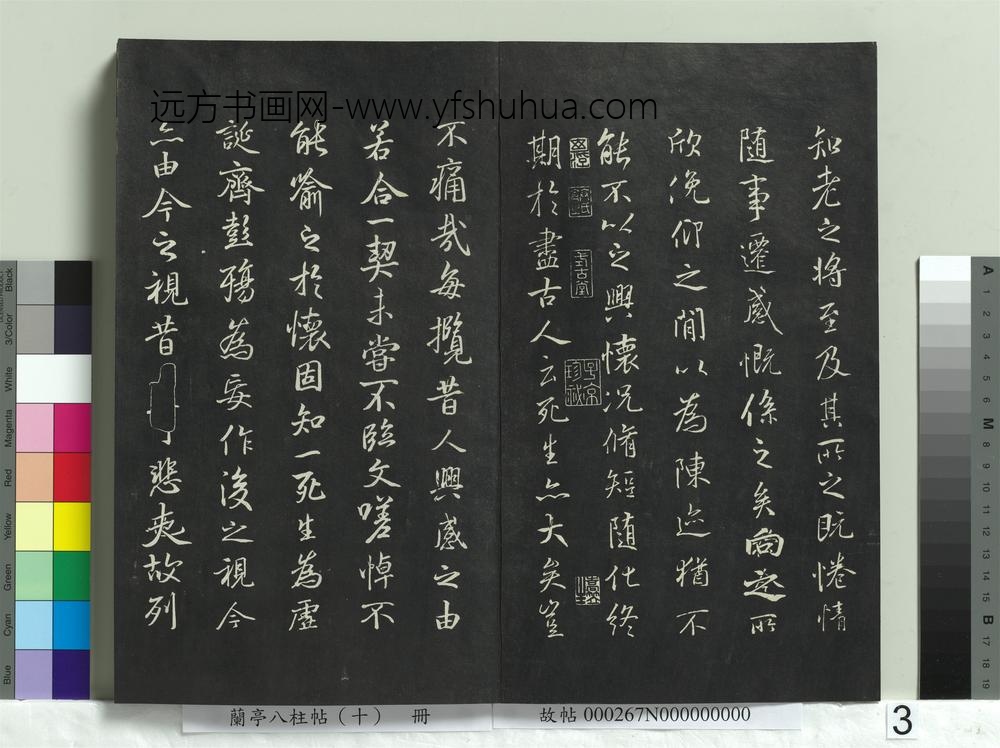 远方书画网-www.yfshuhua.com
知老之將至及其所之既惓情
随事遷感慨係之矣向之所
欣俛仰之閒以為陳迹猶不
能不以之興懷況脩短随化終
期於盡古人云死生亦大矣豈
不痛哉每攬昔人興感之由
若合一契未嘗不臨文嗟悼不
能喻之於懷固知一死生為虛
誕齊彭殤為妄作後之視今
亦由今之視昔
悲夫故列
蘭亭八柱帖（十） 冊
故帖 000267N000000000
3
Black
3/Color
White
Magenta
Red
Yellow
Green
Cyan
Blue
A
1
2
3
4
5
6
M
8
9
10
11
12
13
14
15
B
17
18
19